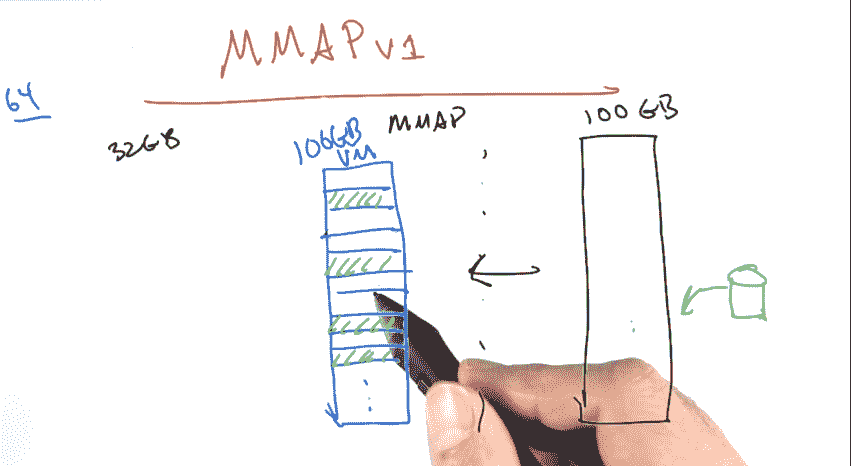 MMAPv1
64
32GB
100GB
VM
MMAP
100 GB